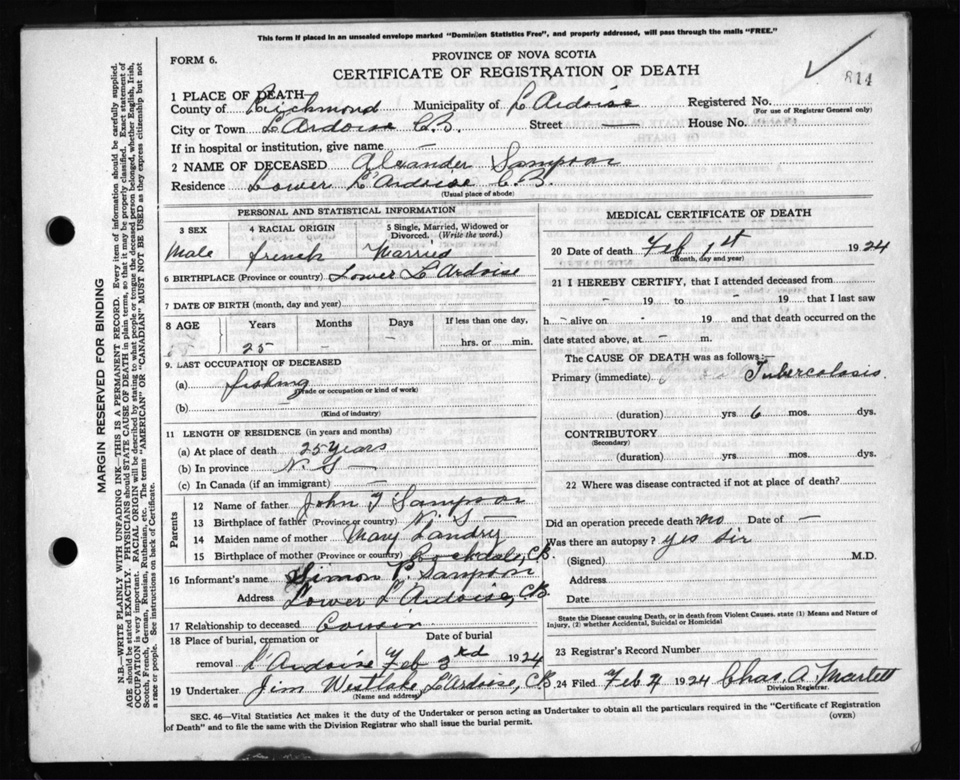 This form if placed in an unsealed envelope marked "Dominion Statistics Free", and properly addressed, will pass through the mails "FREE."
FORM 6.
PROVINCE OF NOVA SCOTIA
CERTIFICATE OF REGISTRATION OF DEATH
814
1 PLACE OF DEATH
County of Richmond Municipality of L'Ardoise Registered No.
(For use of Registrar General only)
City or Town L'Ardoise C.B. Street — House No.
If in hospital or institution, give name —
2 NAME OF DECEASED Alexander Sampson
Residence Lower L'Ardoise C.B.
(Usual place of abode)
PERSONAL AND STATISTICAL INFORMATION
3 SEX 4 RACIAL ORIGIN 5 Single, Married, Widowed or Divorced. (Write the word.)
Male french Married
6 BIRTHPLACE (Province or country) Lower L'Ardoise
7 DATE OF BIRTH (month, day and year)
8 AGE Years Months Days If less than one day,
25 – – hrs. or min.
9. LAST OCCUPATION OF DECEASED
(a) fishing
(Trade or occupation or kind of work)
(b) –
(Kind of industry)
11 LENGTH OF RESIDENCE (in years and months)
(a) At place of death 25 years
(b) In province N.S —
(c) In Canada (if an immigrant) —
Parents
12 Name of father John Sampson
13 Birthplace of father (Province or country) N.S —
14 Maiden name of mother Mary Landry
15 Birthplace of mother (Province or country) Rockdale, C.B.
16 Informant's name Simon P. Sampson
Address Lower L'Ardoise, C.B.
17 Relationship to deceased Cousin
18 Place of burial, cremation or removal Date of burial
L'Ardoise Feb 3rd 1924
19 Undertaker Jim Westlake L'Ardoise, C.B.
(Name and address)
MEDICAL CERTIFICATE OF DEATH
20 Date of death Feb 1st 1924
(Month, day and year)
21 I HEREBY CERTIFY, that I attended deceased from
– 19 to – 19 that I last saw
h – alive on - 19 and that death occurred on the
date stated above, at – m.
The CAUSE OF DEATH was as follows:—
Primary (immediate) Tuberculosis
(duration) yrs 6 mos. dys.
CONTRIBUTORY
(Secondary)
(duration) yrs. mos. dys.
22 Where was disease contracted if not at place of death?
Did an operation precede death? no Date of –
Was there an autopsy? yes sir
(Signed) M.D.
Address
Date
State the Disease causing Death, or in death from Violent Causes. state (1) Means and Nature of
Injury, (2) whether Accidental, Suicidal or Homicidal
23 Registrar's Record Number
24 Filed Feb 4 1924 Chas. A. Martell
Division Registrar
SEC. 46—Vital Statistics Act makes it the duty of the Undertaker or person acting as Undertaker to obtain all the particulars required in the "Certificate of Registration
of Death" and to file the same with the Division Registrar who shall issue the burial permit.
(OVER)
MARGIN RESERVED FOR BINDING
N.B.—WRITE PLAINLY WITH UNFADING INK—THIS IS A PERMANENT RECORD. Every item of information should be carefully supplied.
AGE should be stated EXACTLY. PHYSICIANS should STATE CAUSE OF DEATH in plain terms, so that it may be properly classified. Exact statement of
OCCUPATION is very important. RACIAL ORIGIN will be described by stating to what people or tongue the deceased person belonged, whether English, Irish,
Scotch, French, German, Russian, Ruthenian, etc. The terms "AMERICAN" or "CANADIAN" MUST NOT BE USED as they express citizenship but not
a race or people. See instructions on back of Certificate.